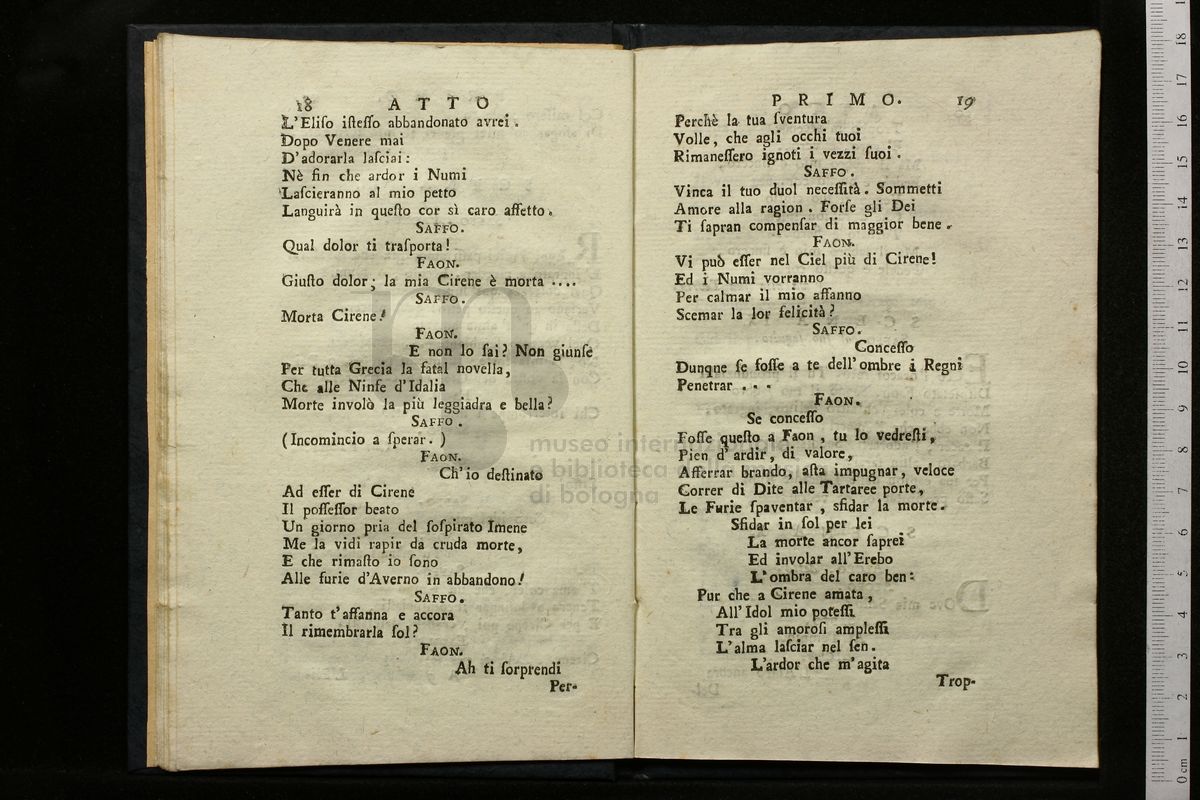 18 ATTO
L'Eliſo iſteſſo abbandonato avrei.
Dopo Venere mai
D'adorarla laſciai:
Nè fin che ardor i Numi
Laſcieranno al mio petto
Languirà in queſto cor sì caro affetto.
SAFFO.
Qual dolor ti traſporta!
FAON.
Giuſto dolor; la mia Cirene è morta ....
SAFFO.
Morta Cirene!
FAON.
E non lo ſai? Non giunſe
Per tutta Grecia la fatal novella,
Che alle Ninfe d'Idalia
Morte involò la più leggiadra e bella?
SAFFO.
(Incomincio a ſperar.)
FAON.
Ch'io deſtinato
Ad eſſer di Cirene
Il poſſeſſor beato
Un giorno pria del ſoſpirato Imene
Me la vidi rapir da cruda morte,
E che rimaſto io ſono
Alle furie d'Averno in abbandono!
SAFFO.
Tanto t'affanna e accora
Il rimembrarla ſol?
FAON.
Ah ti ſorprendi
Per-
PRIMO. 19
Perchè la tua ſventura
Volle, che agli occhi tuoi
Rimaneſſero ignoti i vezzi ſuoi.
SAFFO.
Vinca il tuo duol neceſſità. Sommetti
Amore alla ragion. Forſe gli Dei
Ti ſapran compenſar di maggior bene.
FAON.
Vi può eſſer nel Ciel più di Cirene!
Ed i Numi vorranno
Per calmar il mio affanno
Scemar la lor felicità?
SAFFO.
Conceſſo
Dunque ſe foſſe a te dell'ombre i Regni
Penetrar . . .
FAON.
Se conceſſo
Foſſe queſto a Faon, tu lo vedreſti,
Pien d'ardir, di valore,
Afferrar brando, aſta impugnar, veloce
Correr di Dite alle Tartaree porte,
Le Furie ſpaventar, sfidar la morte.
Sfidar in ſol per lei
La morte ancor ſaprei
Ed involar all'Erebo
L'ombra del caro ben:
Pur che a Cirene amata,
All'Idol mio poteſſi
Tra gli amoroſi ampleſſi
L'alma laſciar nel ſen.
L'ardor che m'agita
Trop-
museo
e biblioteca
di bologna
0 cm 1 2 3 4 5 6 7 8 9 10 11 12 13 14 15 16 17 18